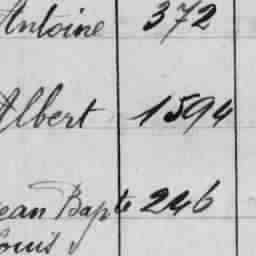 Antoine 372
Albert 1594
Jean Bapte 246
Louis